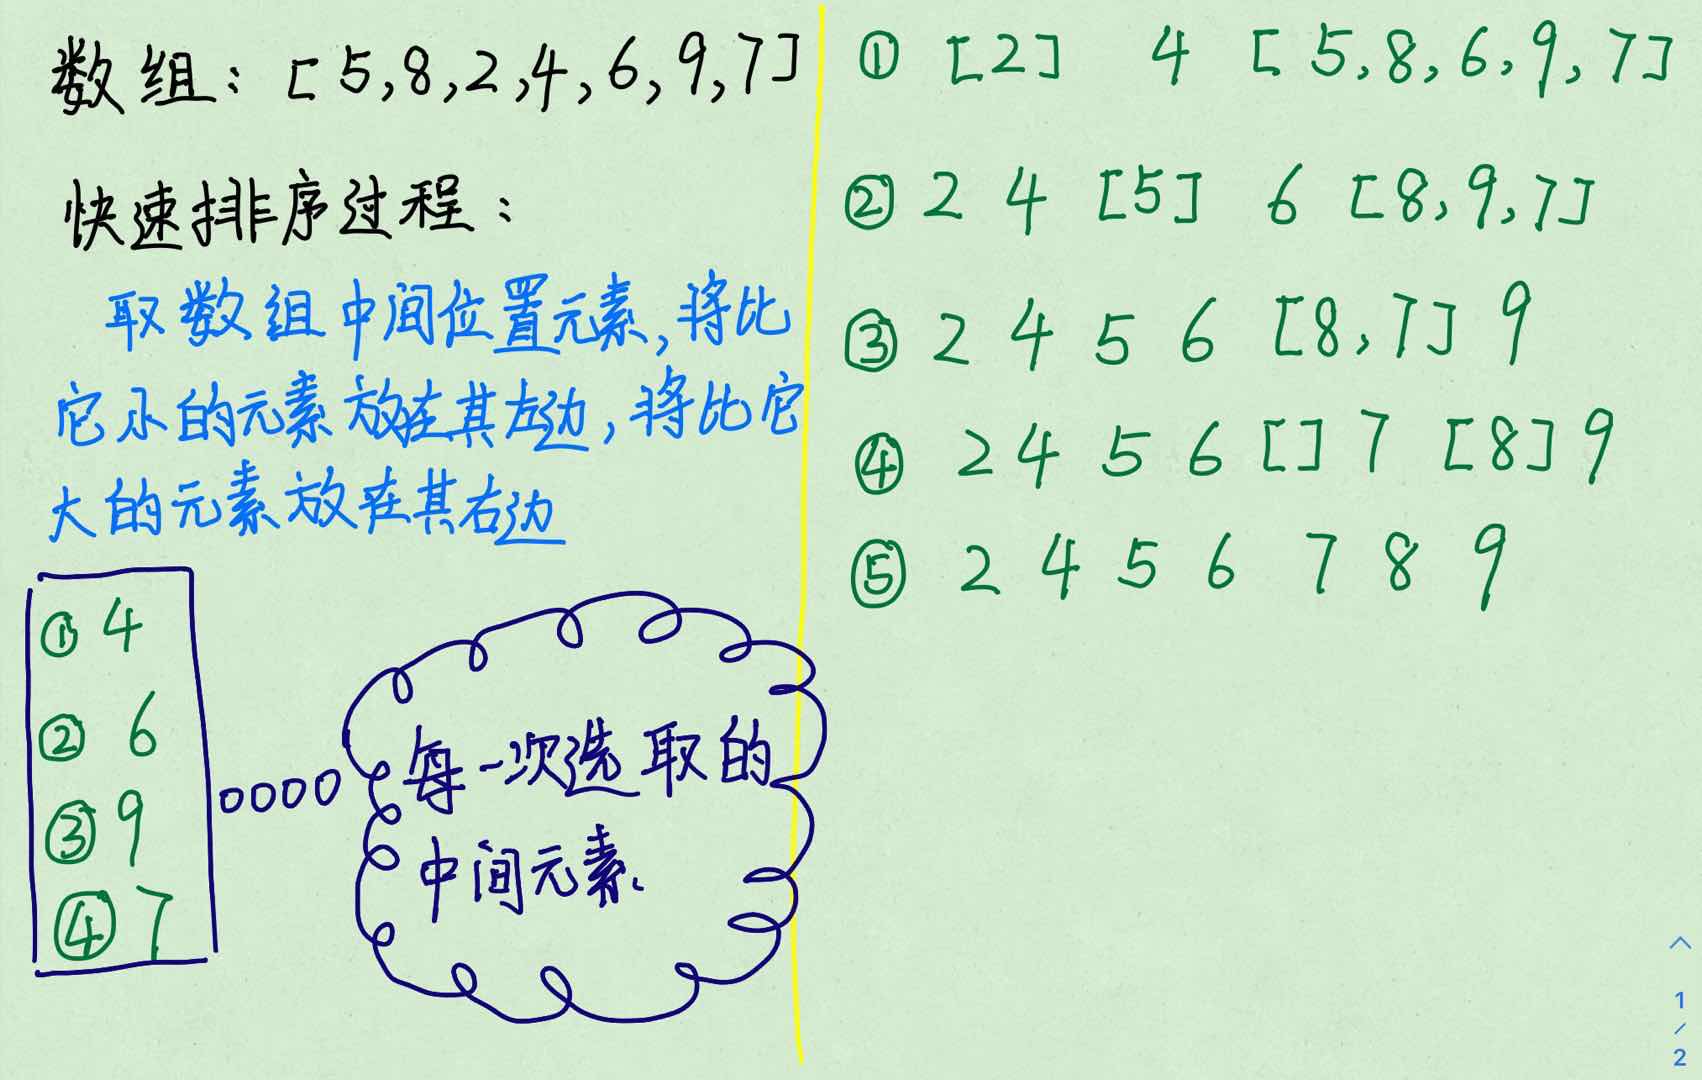 数组：[5,8,2,4,6,9,7]
快速排序过程：
取数组中间位置元素,将比
它小的元素放在其左边,将比它
大的元素放在其右边
① 4
② 6
③ 9
④ 7
每一次选取的
中间元素.
① [2] 4 [5,8,6,9,7]
② 2 4 [5] 6 [8,9,7]
③ 2 4 5 6 [8,7] 9
④ 2 4 5 6 [] 7 [8] 9
⑤ 2 4 5 6 7 8 9
1
/
2